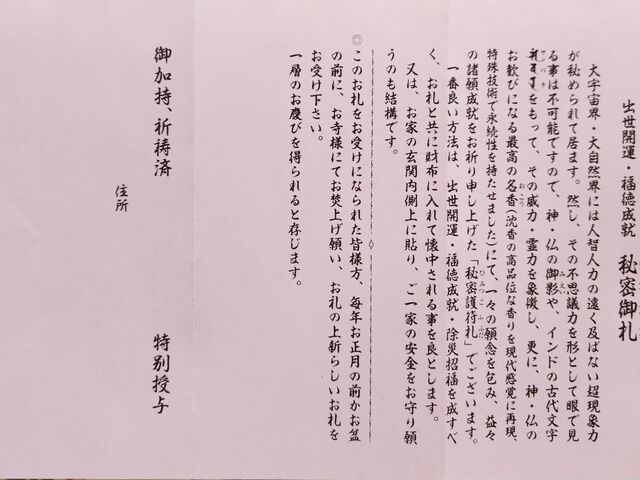 出世開運・福徳成就 秘密御札
大宇宙界・大自然界には人智人力の遠く及ばない超現象力
が秘められて居ます。然し、その不思議力を形として眼で見
る事は不可能ですので、神・仏の御影や、インドの古代文字
をもって、その威力・霊力を象徴し、更に、神・仏の
お歓びになる最高の名香(沈香の高品位な香りを現代感覚に再現、
特殊技術で永続性を持たせました)にて、一々の願念を包み、益々
の諸願成就をお祈り申し上げた「秘密護符札」でございます。
一番良い方法は、出世開運・福徳成就・除災招福を成すべ
く、お札と共に財布に入れて懐中される事を良とします。
又は、お家の玄関内側上に貼り、ご一家の安全をお守り願
うのも結構です。
◎このお札をお受けになられた皆様方、毎年お正月の前かお盆
の前に、お寺様にてお焚上げ願い、お札の上新らしいお札を
お受け下さい。
一層のお慶びを得られると存じます。
御加持、祈祷済 特別授与
住所